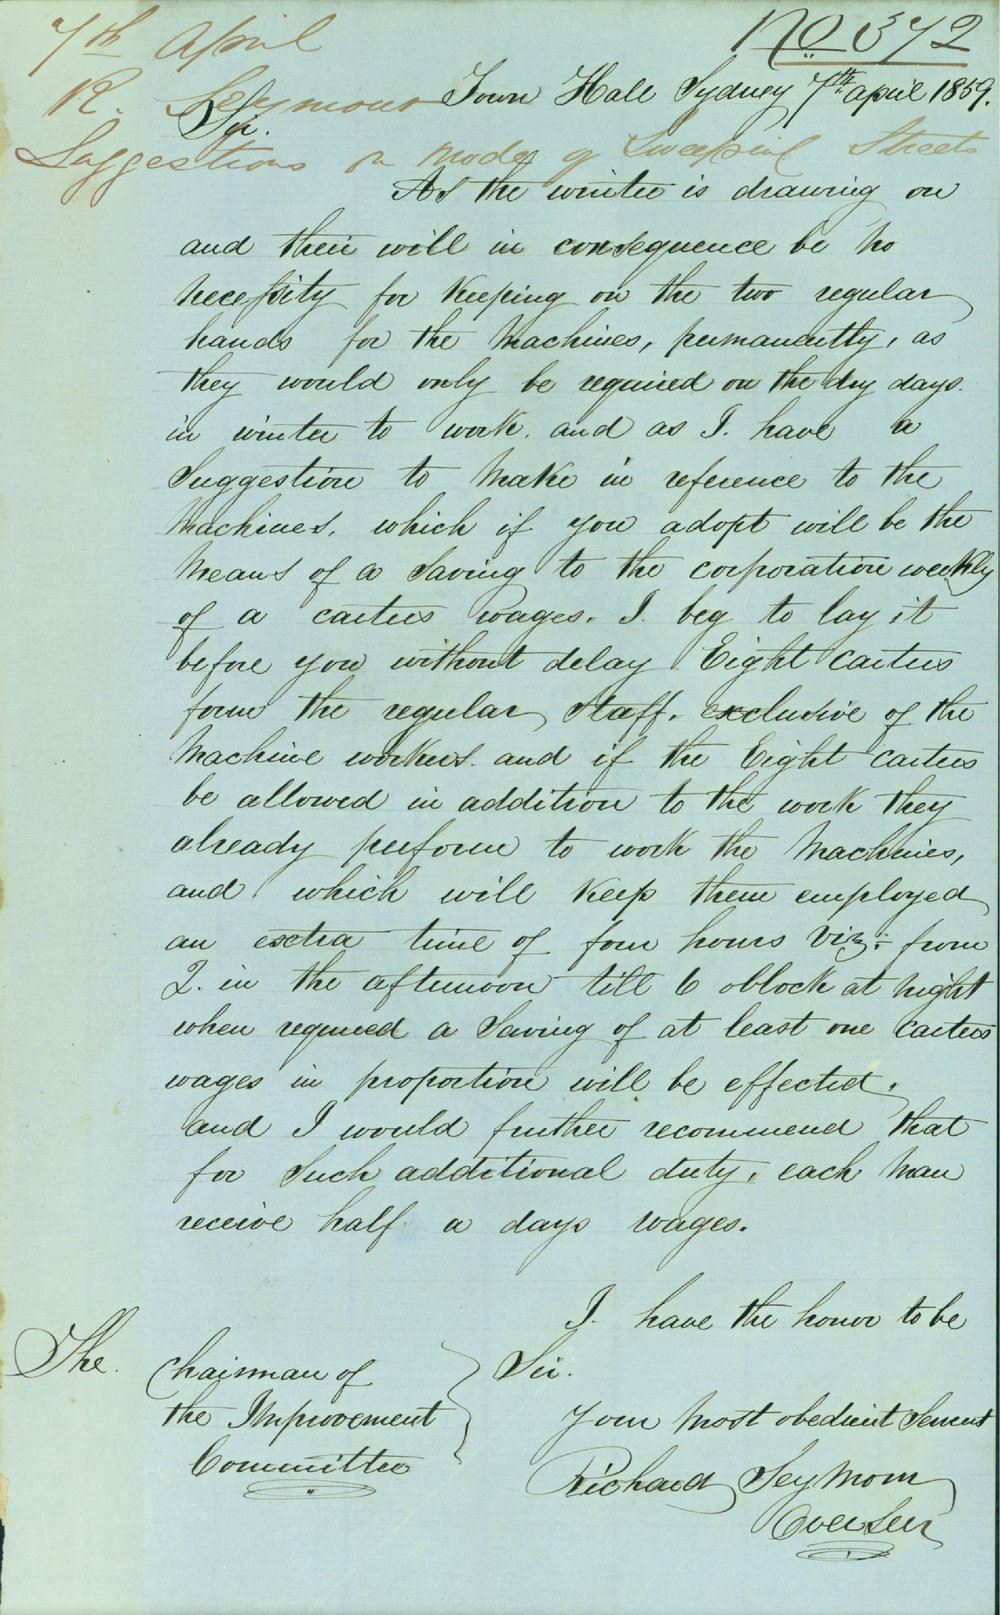 7th April
No 372
R. Seymour
Town Hall Sydney 7th april 1859.
Sir.
Suggestions on mode of Sweeping Streets
As the winter is drawing on
and their will in consequence be no
necessity for keeping on the two regular
hands for the Machines, permanently, as
they would only be required on the dry days
in winter to work. and as I. have a
Suggestion to Make in reference to the
Machines. which if you adopt will be the
Means of a Saving to the corporation weekly
of a carters wages. I. beg to lay it
before you without delay Eight Carters
form the regular staff. exclusive of the
Machine workers. and if the Eight Carters
be allowed in addition to the work they
already perform to work the Machines,
and which will keep them employed
an extra time of four hours viz: from
2. in the afternoon till 6 oblock at night
when required a Saving of at least one Carters
wages in proportion will be effected.
and I would further recommend that
for Such additional duty, each Man
receive half a days wages.
I. have the honor to be
The Chairman of
Sir.
the Improvement
Your Most obedient Servant
Committee
Richard Seymour
Overseer